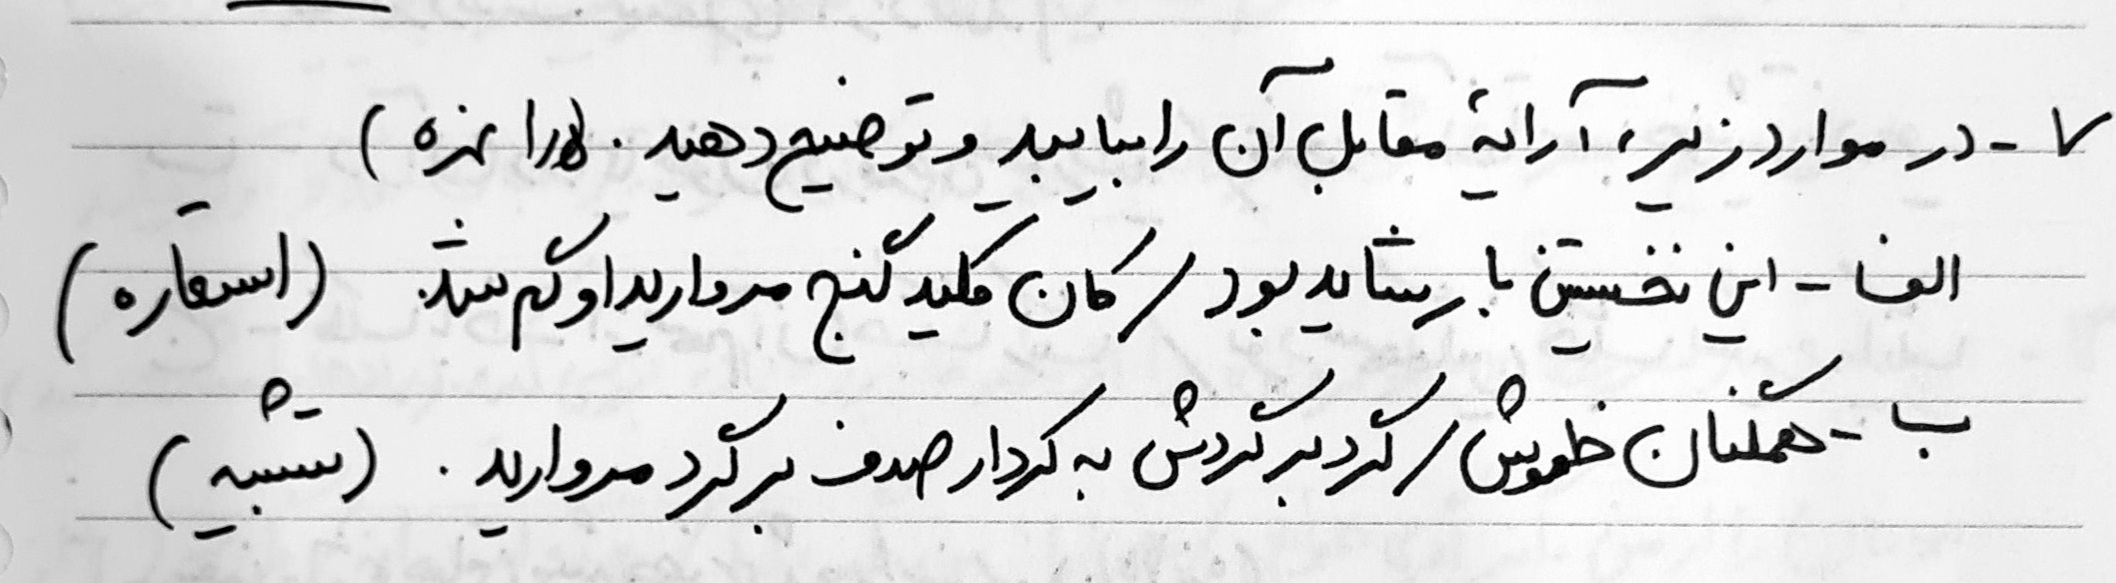 ۷ - در موارد زیر، آرایهٔ مقابل آن را بیابید و توضیح دهید. (۱ نمره)
الف - این نخستین بار شاید بود / کان کلید گنج مروارید او گم شد. (استعاره)
ب - همگنان خاموش / گرد بر گردش به کردار صدف بر گرد مروارید. (تشبیه)